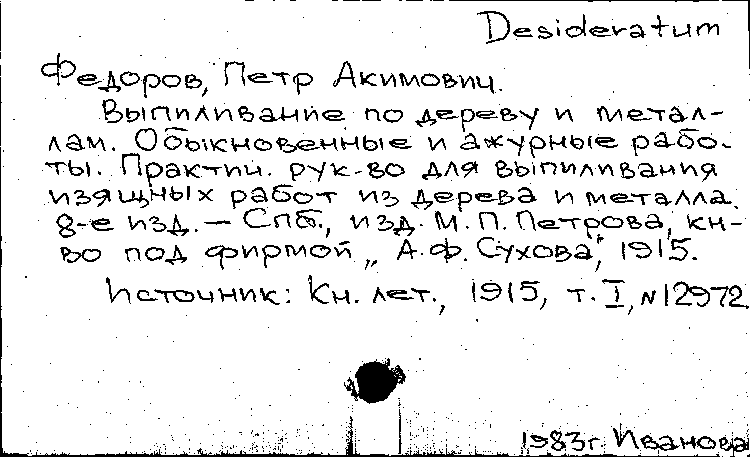 Desideratum
Федоров, Петр Акимович.
Выпиливание по дереву и метал-
лам. Обыкновенные и ажурные рабо-
ты. Практич. рук-во для выпиливания
изящных работ из дерева и металла.
8-е изд. — Спб., изд. М. П. Петрова, кн-
во под фирмой „А. Ф. Сухова", 1915.
Источник: Кн. лет., 1915, т. I, N 12972
1983г. Иванова